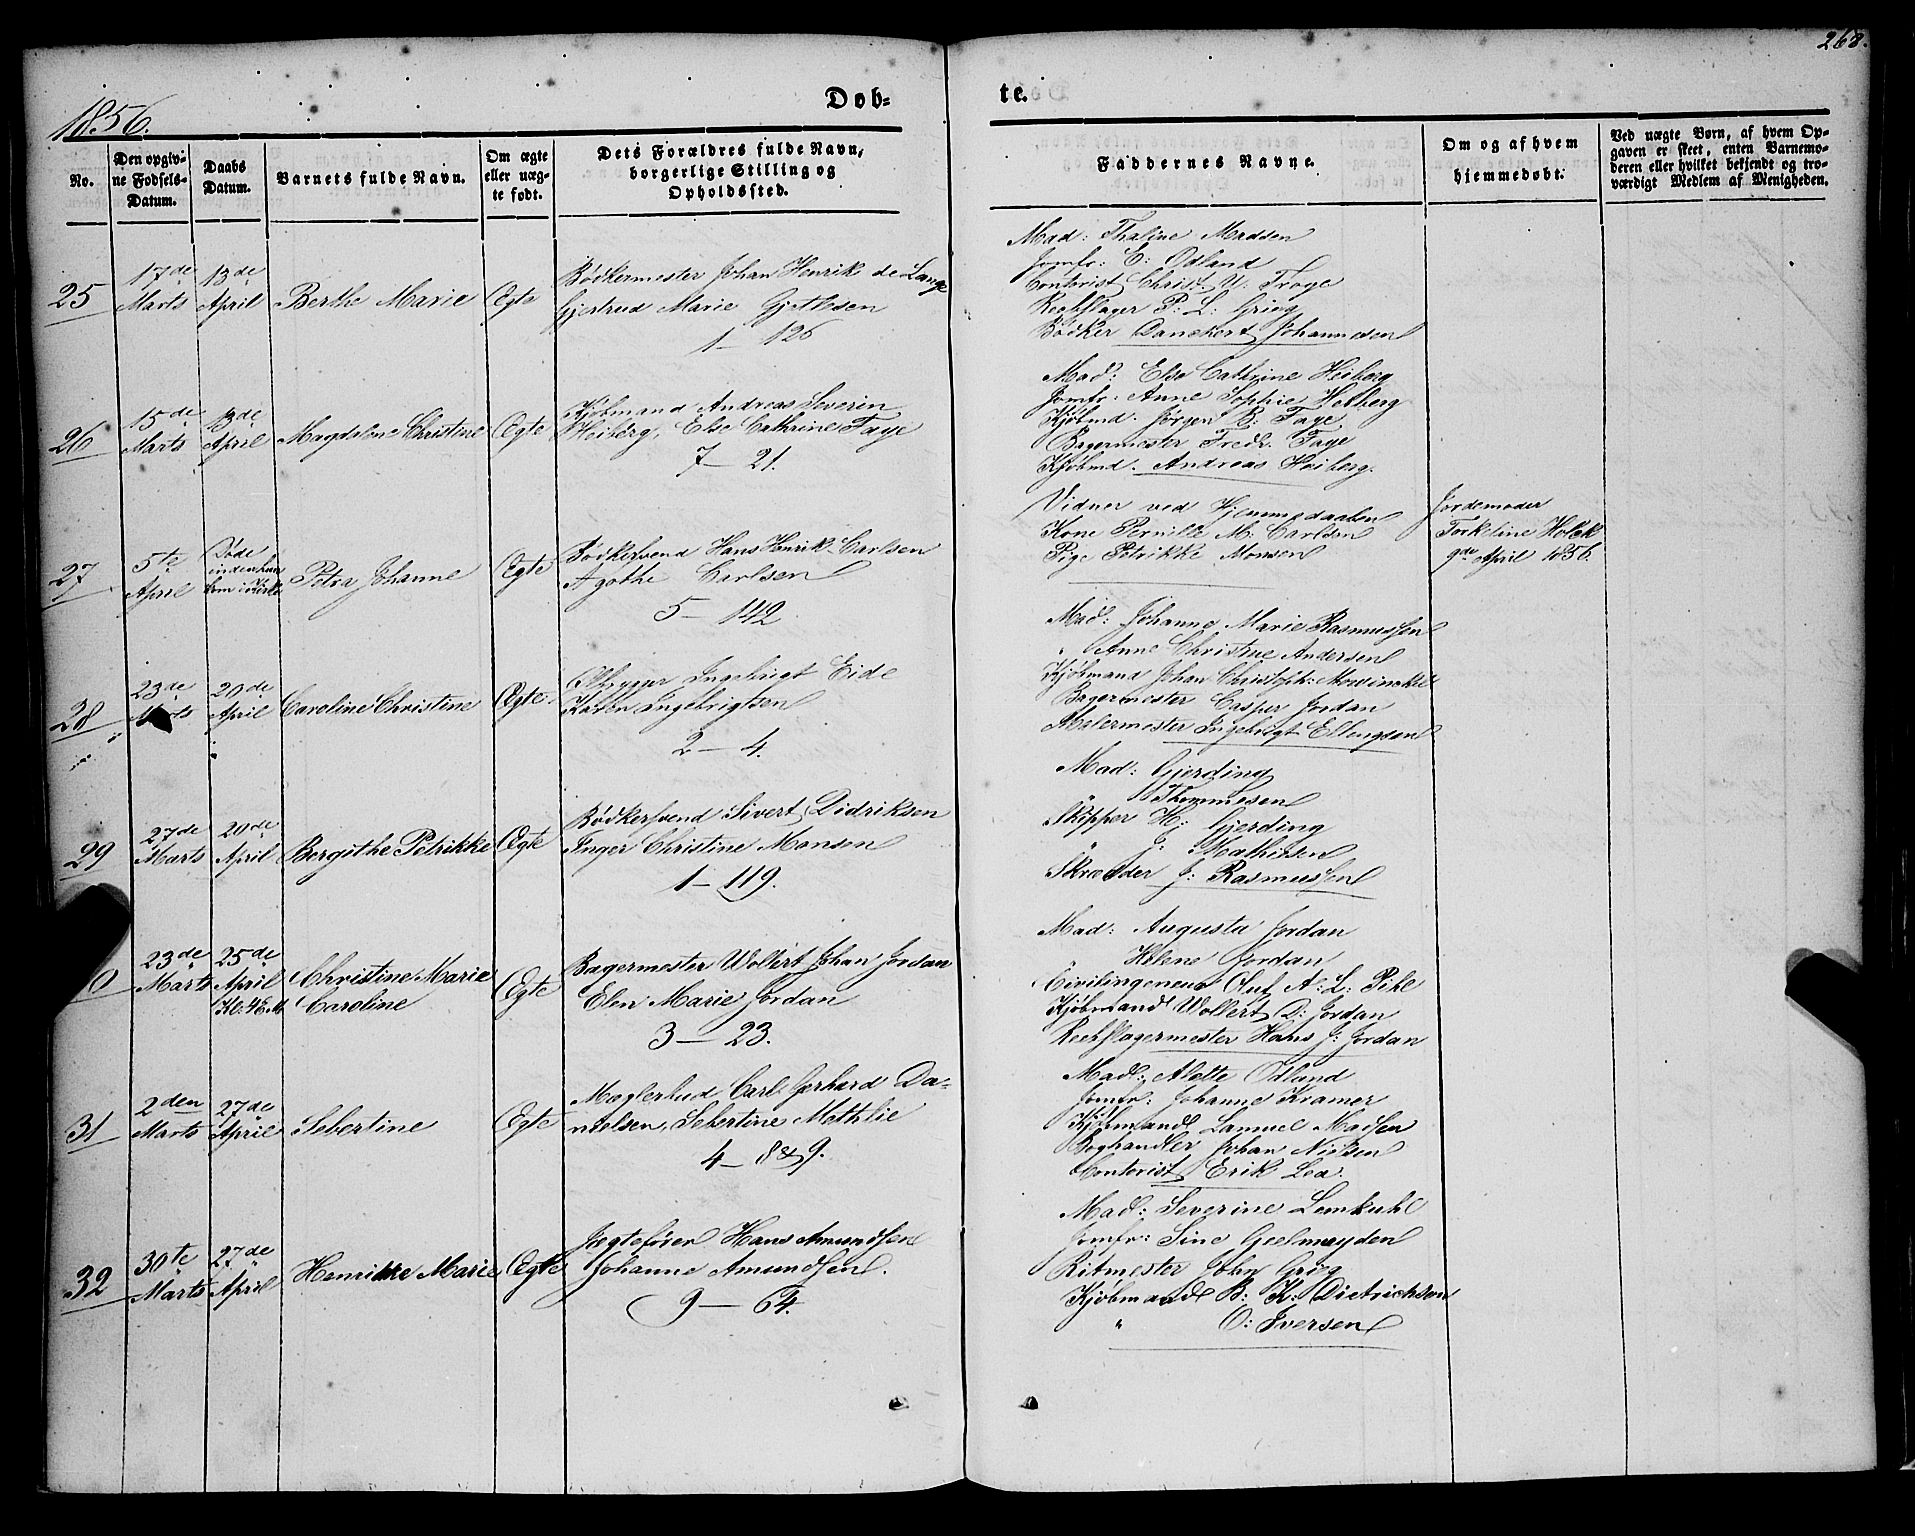 268.
1856.
Døb-
te.
No.
Den opgiv-
ne Fødsels-
Datum.
Daabs
Datum.
Barnets fulde Navn.
Om ægte
eller uæg-
te født.
Dets Forældres fulde Navn,
borgerlige Stilling og
Opholdssted.
Faddernes Navne.
Om og af hvem
hjemmedøbt.
Ved uægte Børn, af hvem Op-
gaven er skeet, enten Barnemo-
deren eller hvilket bekjendt og tro-
værdigt Medlem af Menigheden.
25
17de
Marts
13de
April
Berthe Marie
Ægte
Bødkermester Johan Henrik de Lange
Gjertrud Marie Gjertsen
1 – 126
Mad: Thaline Madsen
Jomfr: E: Odland
Contorist Christ. U. Troye
Rebslager P: L: Grieg
Bødker Danckert Johannesen
26
15de
Marts
13de
April
Magdalene Christine
Ægte
Kjøbmand Andreas Severin
Heiberg, Else Cathrine Faye
7 – 21.
Mad: Else Cathrine Heiberg
Jomfr: Anne Sophie Heiberg
Kjøbmd. Jørgen B: Faye
Bagermester Fredr. Faye
Kjøbmd. Andreas Heiberg.
27
5te
April
Døde
inden hun
kom i Kirke
Petra Johanne
Ægte
Bødkersvend Hans Henrik Carlsen
Agathe Carlsen
5 – 142
Vidner ved Hjemmedaaben
Kone Pernille M: Carlsen
Pige Petrikke Monsen
Jordemoder
Torkeline Holck
9de April 1856.
28
23de
Marts
20de
April
Caroline Christine
Ægte
Ølbrygger Ingebrigt Eide
Karen Ingebrigtsen
2 – 4.
Mad: Johanne Marie Rasmussen
" Anne Christine Andersen
Kjøbmand Johan Christoph: Mowinckel
Bagermester Casper Jordan
Malermester Ingebrigt Ellingsen
29
27de
Marts
20de
April
Bergithe Petrikke
Ægte
Bødkersvend Sivert Didriksen
Inger Christine Monsen
1 – 119.
Mad: Gjerding
" Thommesen
Skipper H: Gjerding
" J: Mathissen
Skrædder J: Rasmussen
0
23de
Marts
25de
April
Kl: 4 E. M.
Christine Marie
Caroline
Ægte
Bagermester Wollert Johan Jordan
Elen Marie Jordan
3 – 23.
Mad: Augusta Jordan
" Helene Jordan
Civilingeneur Oluf A: L: Pihl
Kjøbmand Wollert D: Jordan
Rebslagermester Hans J: Jordan
31
2den
Marts
27de
April
Sebertine
Ægte
Mæglerbud Carl Gerhard Da-
nielsen, Sebertine Methlie
4 – 8 & 9.
Mad: Alette Odland
Jomfr: Johanne Kramer
Kjøbmand Samuel Madsen
Boghandler Johan Nielsen
Contorist Erik Lea.
32
30te
Marts
27de
April
Henrikke Marie
Ægte
Jægtefører Hans Amundsen
Johanne Amundsen.
9 – 64.
Mad: Severine Lemkuhl
Jomfr: Sine Geelmuyden
Ritmester John Grieg
Kjøbmand B: K: Dietrichsen
" O: Iversen